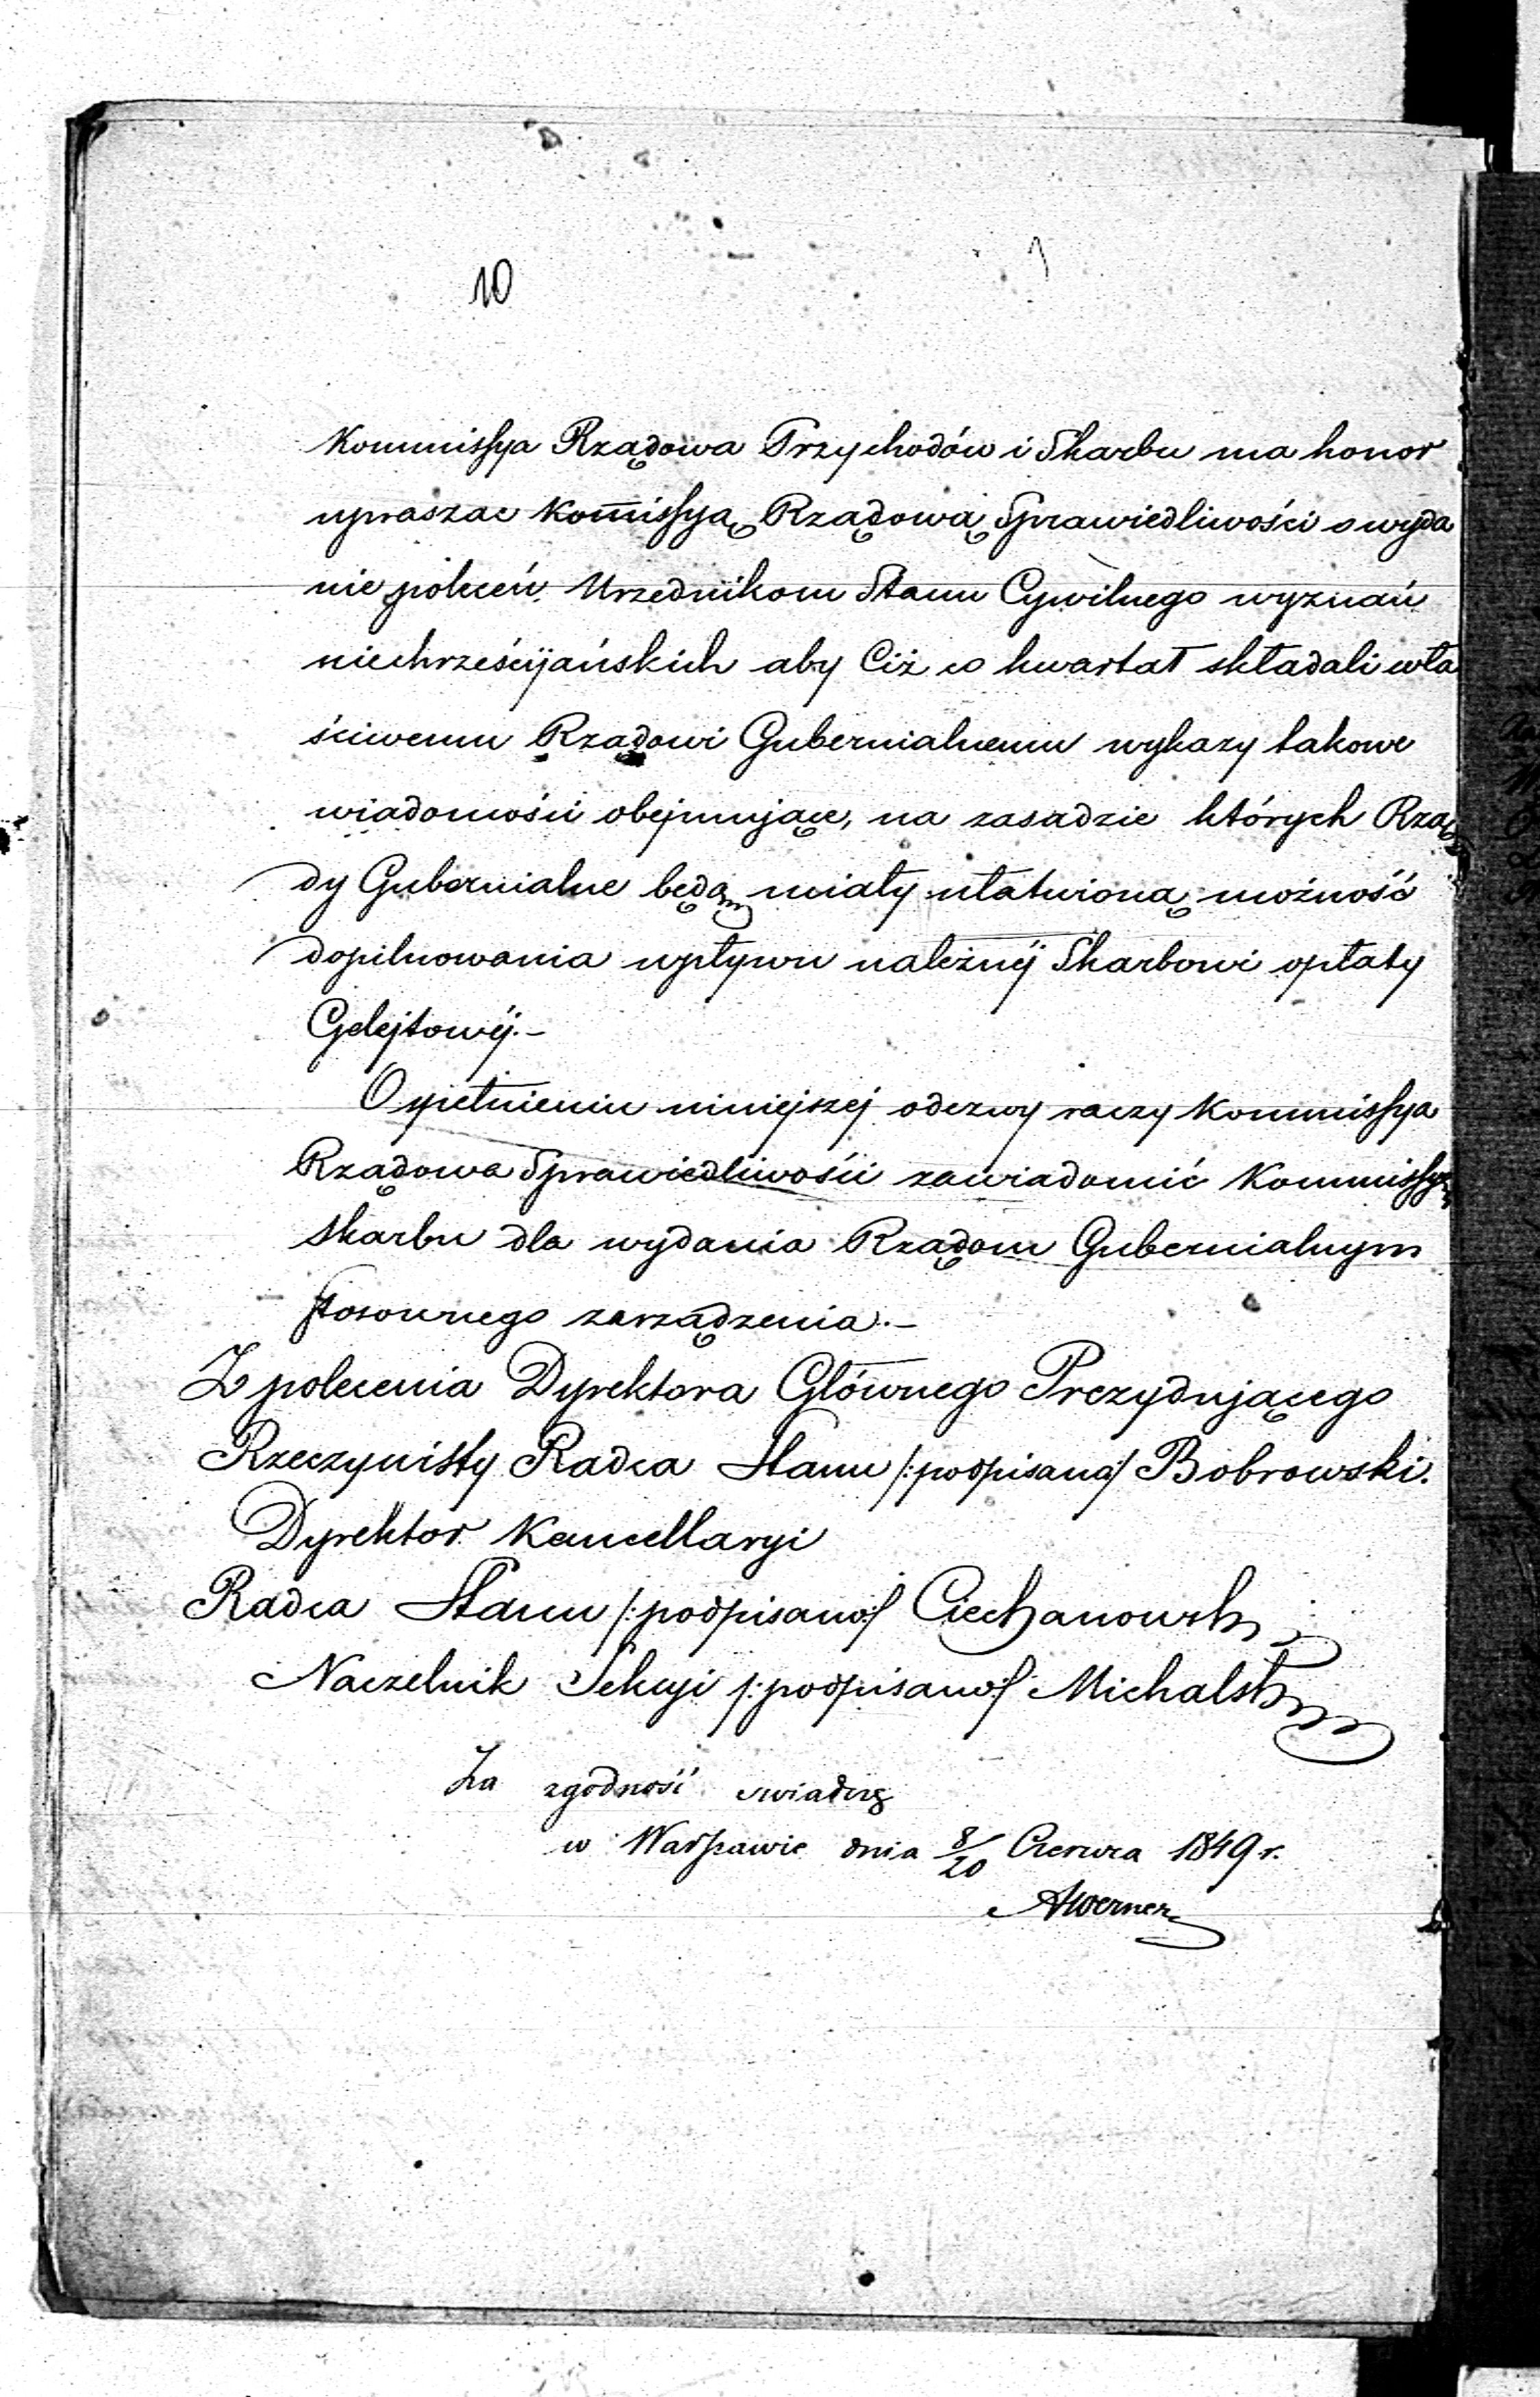 10
Kommissya Rządowa Przychodów i Skarbu ma honor
upraszac Komissyą Rządową Sprawiedliwości o wyda
nie poleceń Urzednikom Stanu Cywilnego wyznań
niechrześcijańskich aby Ciż co kwartał składali wła
ściwemu Rządowi Gubernialnemu wykazy takowe
wiadomości obejmujące, na zasadzie których Rzą
dy Gubernialne będą miały ułatwioną możność
dopilnowania wpływu należnéj Skarbowi opłaty
Gelejtowéj.-
O spełnieniu niniejszej odezwy raczy Kommissya
Rządowa Sprawiedliwości zawiadomić Kommissyą
Skarbu dla wydania Rządom Gubernialnym
stosownego zarządzenia.-
Z polecenia Dyrektora Głównego Prezydującego
Rzeczywisty Radca Stanu /:podpisano:/ Bobrowski.
Dyrektor Kancellaryi
Radca Stanu /:podpisano:/ Ciechanowski
Naczelnik Sekcyi /:podpisano:/ Michalski
Za zgodność swiadczę
w Warszawie dnia 8/20 Czerwca 1849 r.
AWerner